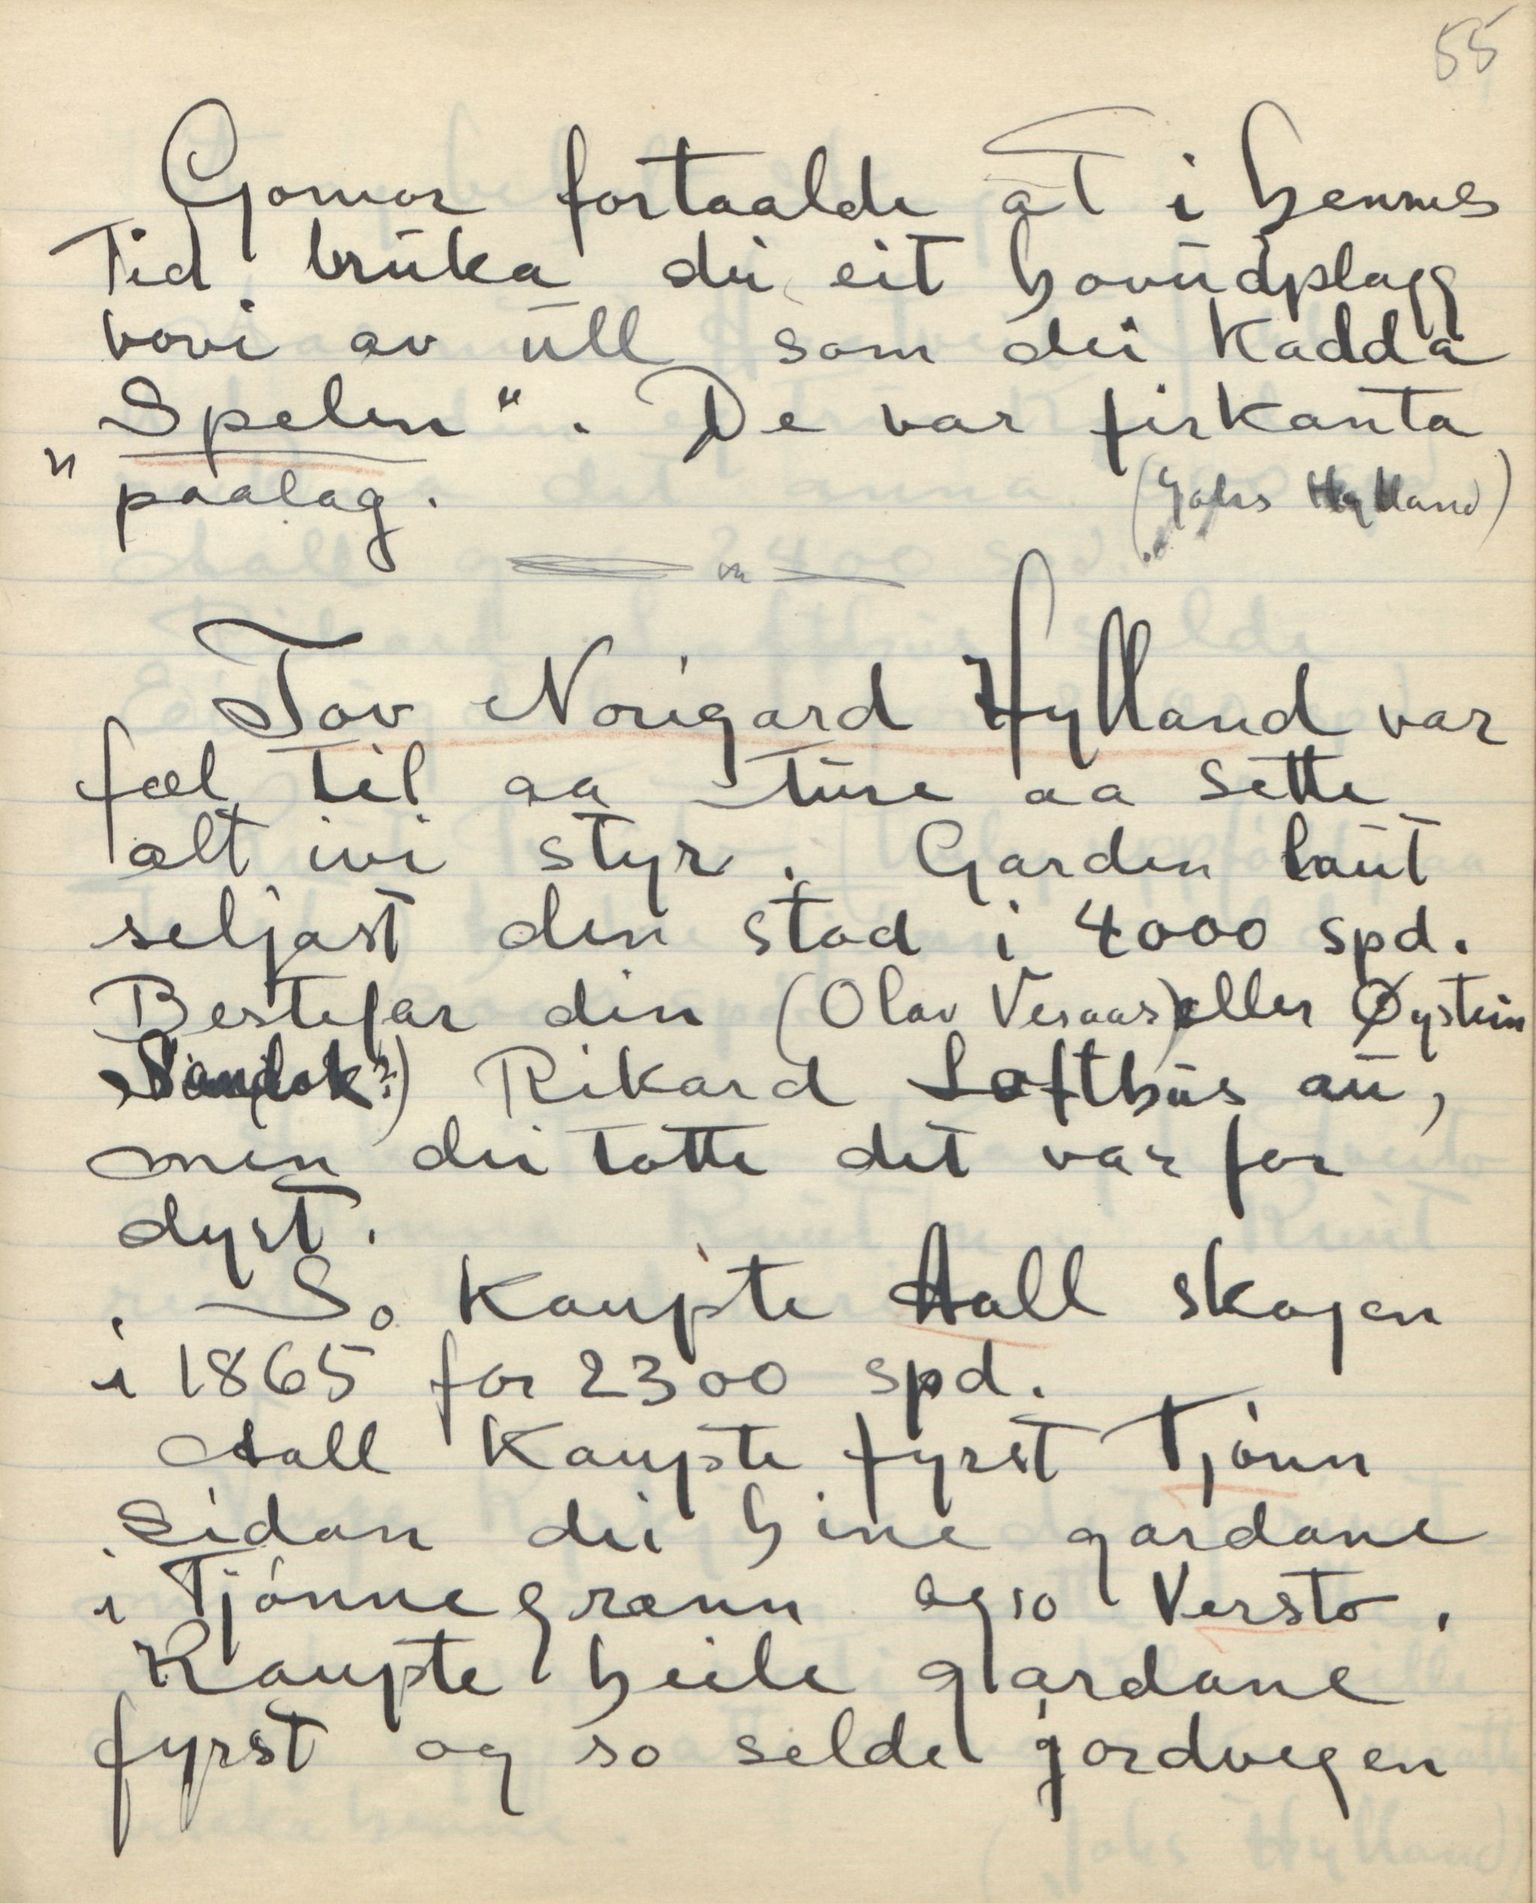 55
Gomor fortaalde at i hennes
Tid bruka dei eit hovudplagg
vovi av ull som dei kadda
„Spelen“. De var firkanta
paalag. (Johs Hylland)
Tov Norigard Hylland var
fæl til aa ture aa sette
alt ivi styr. Garden laut
seljast den stad i 4000 spd.
Bestefar din (Olav Vesaas) eller Øystein
Rikard Lofthus au,
men dei totte det var for
dyrt.
So kaupte Aall skogen
i 1865 for 2300 spd.
Aall kaupte fyrst Tjønn
Sidan dei hine gardane
i Tjønnegrænn ogso Versto.
Kaupte heile gardane
fyrst og so selde jordvegen